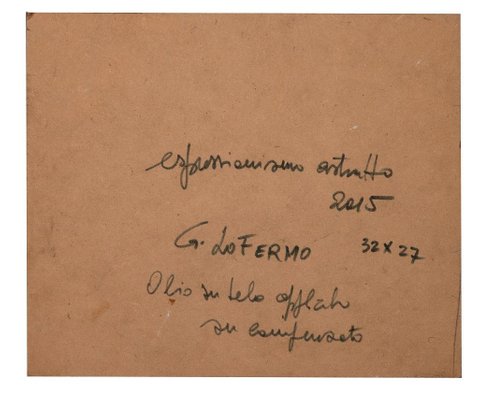 espressionismo astratto
2015
G. LoFERMO 32x27
Olio su tela applicato
su compensato